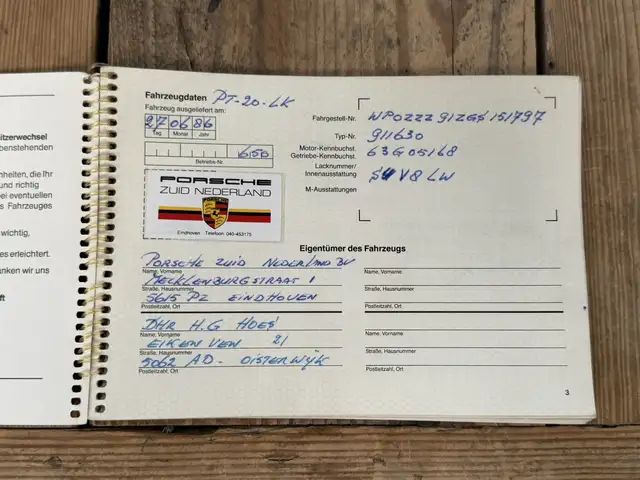 itzerwechsel
benstehenden
nheiten, die Ihr
und richtig
bei eventuellen
s Fahrzeuges
wichtig,
es erleichtert.
nken wir uns
ft
Fahrzeugdaten PT-20-LK
Fahrzeug ausgeliefert am:
27 06 86
Tag Monat Jahr
650
Betriebs-Nr.
PORSCHE
ZUID NEDERLAND
PORSCHE
Eindhoven Telefoon 040-453175
Fahrgestell-Nr. WPOZZZ91ZGS151797
Typ-Nr. 911630
Motor-Kennbuchst. 63G05168
Getriebe-Kennbuchst.
Lacknummer/
Innenausstattung V8 LW
M-Ausstattungen
Eigentümer des Fahrzeugs
PORSCHE ZUID NEDERLAND BV
Name, Vorname
MECKLENBURGSTRAAT 1
Straße, Hausnummer
5615 PZ EINDHOVEN
Postleitzahl, Ort
DHR H.G HOES
Name, Vorname
EIKEN VEN 21
Straße, Hausnummer
5062 AD. OISTERWIJK
Postleitzahl, Ort
Name, Vorname
Straße, Hausnummer
Postleitzahl, Ort
Name, Vorname
Straße, Hausnummer
Postleitzahl, Ort
3